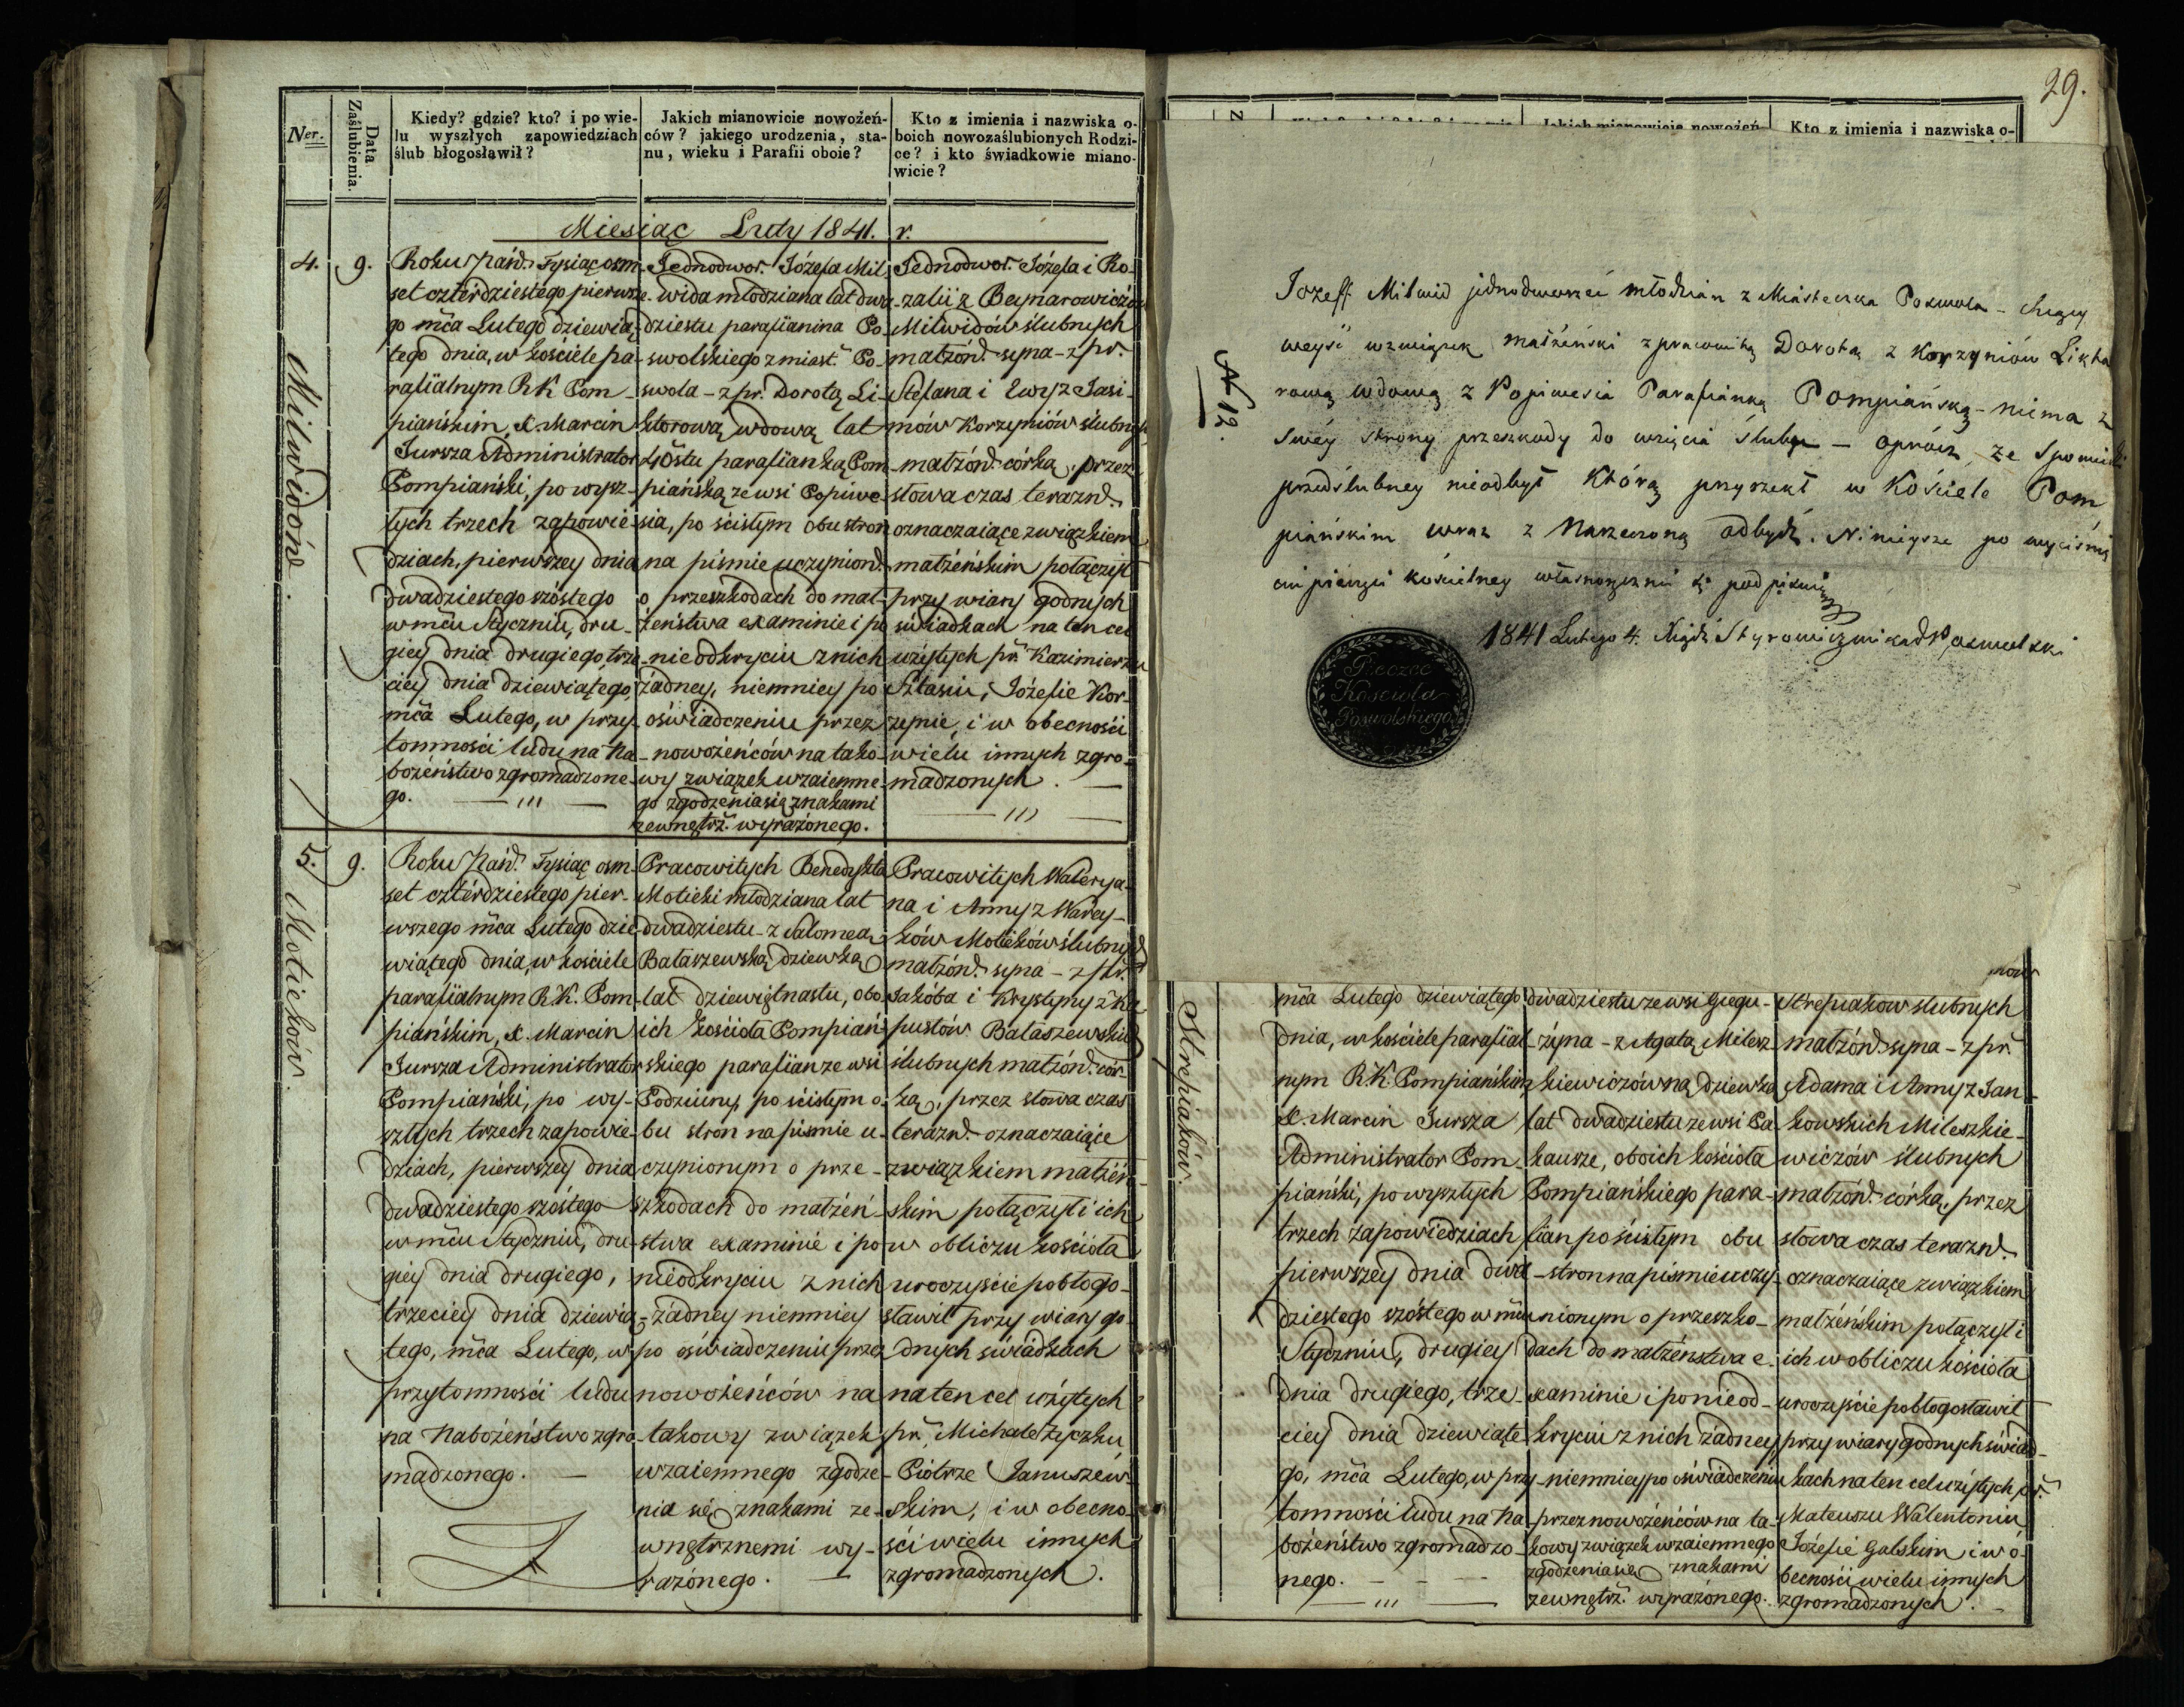 Ner.
Data Zaślubienia.
Kiedy? gdzie? kto? i po wie-
lu wyszłych zapowiedziach
ślub błogosławił?
Jakich mianowicie nowożeń-
ców? jakiego urodzenia, sta-
nu, wieku i Parafii oboie?
Kto z imienia i nazwiska o-
boich nowozaślubionych Rodzi-
ce? i kto świadkowie miano-
wicie?
Miesiąc Luty 1841. r.
4.
9.
Milwidów.
Roku Pańd. Tysiąc osm-
set cztérdziestégo pierwsze-
go mča Lutego dziewią-
tego dnia, w kościele pa-
rafiialnym RK Pom-
piańskim, X. Marcin
Jursza Administrator
Pompiański, po wysz-
łych trzech zapowie-
dziach, pierwszey dnia
dwadziestego szóstego
w mču Styczniu, dru-
giey dnia drugiego, trze-
ciey dnia dziewiątego,
mča Lutego, w przy-
tomności ludu na Na-
bożeństwo zgromadzone-
go.
Jednodwor. Józefa Mil-
wida młodziana lat dwa-
dziestu parafiianina Po-
swolskiego z miast. Po-
swola - z pr. Dorotą Li-
ktorową wdową lat
40stu parafiianką Pom-
piańską ze wsi Popiwe-
sia, po ścisłym obu stron
na pismie uczyniond.
o przeszkodach do mał-
żeństwa examinie i po
nieodkryciu z nich
żadney, niemniey po
oświadczeniu przez
nowożeńców na tako-
wy związek wzaiemne-
go zgodzenia się znakami
zewnętrž. wyrażonego.
Jednodwor. Józefa i Ro-
zalii z Beynarowiczów
Milwidów ślubnych
małżónd. syna - z pr.
Stefana i Ewy z Jasi-
mów Korzyniów ślubnych
małżónd. córką, przez
słowa czas terazńd.
oznaczaiące związkiem
małżeńskim połączył
przy wiary godnych
świadkach na ten cel
użytych pr. Kazimierzu
Sztasiu, Józefie Kor-
zynie, i w obecności
wielu innych zgro-
madzonych.
5.
9.
Motieków.
Roku Pańd. Tysiąc osm-
set cztérdziestego pier-
wszego mča Lutego dzie-
wiątego dnia, w kościele
parafiialnym RK. Pom-
piańskim, X. Marcin
Jursza Administrator
Pompiański, po wy-
szłych trzech zapowie-
dziach, pierwszey dnia
dwadziestego szóstego
w mču Styczniu, dru-
giey dnia drugiego,
trzeciey dnia dziewią-
tego, mča Lutego, w
przytomności ludu
na Nabożeństwo zgro-
madzonego.
Pracowitych Benedykta
Motieki młodziana lat
dwadziestu - z Salomeą
Bałaszewską dziewką
lat dziewiętnastu, obo-
ich kościoła Pompiań-
skiego parafiian ze wsi
Podziuny, po ścisłym o-
bu stron na pismie u-
czynionym o prze-
szkodach do małżeń-
stwa examinie i po
nieodkryciu z nich
żadney niemniey
po oświadczeniu przez
nowożeńców na
takowy związek
wzaiemnego zgodze-
nia się znakami ze-
wnętrznemi wy-
rażonego.
Pracowitych Walerya-
na i Anny z Warey-
ków Motieków ślubnych
małżónd. syna - z pr.
Jakóba i Krystyny z Ka-
pustów Bałaszewskich
ślubnych małżónd. cór-
ką, przez słowa czas
terazńd. oznaczaiące
związkiem małżeń-
skim połączył i ich
w obliczu kościoła
uroczyście pobłogo-
sławił przy wiary go-
dnych świadkach
na ten cel użytych
pr. Michale Życzku
Piotrze Januszew-
skim, i w obecno-
ści wielu innych
zgromadzonych.
29.
Kto z imienia i nazwiska o-
N 12.
Jozeff Milwid jednodworzec młodzian z Miasteczka Poswola - chcący
weysć wzwiązek małżeński z pracowitą Dorotą z Korzyniów Likto
rową wdową z Popiwesia Parafianką Pompiańską - niema z
swéy strony przeszkody do wzięcia ślubu - oprócz że Spowiedzi
przedślubney nieodbył którą przyrzekł w Kościele Pom
piańskim wraz z Narzeczoną odbydź. Ninieysze po wyciśnię
ciu pieczęci kościelney własnoręcznie się podpisuię
1841 Lutego 4. Xiądz Styrowicz wikary Poswolski
Pieczęć
Kościoła
Poswolskiego
Strepiaków.
mča Lutego dziewiątego
dnia, w kościele parafiial-
nym RK. Pompiańskim,
X. Marcin Jursza
Administrator Pom-
piański, po wyszłych
trzech zapowiedziach
pierwszey dnia dwa-
dziestego szóstego w mču
Styczniu, drugiey
dnia drugiego, trze-
ciey dnia dziewiąte-
go, mča Lutego, w przy-
tomności ludu na Na-
bożeństwo zgromadzo-
nego.
dwadziestu ze wsi Giegu-
żyna - z Agatą Milesz-
kiewiczówną dziewką
lat dwadziestu ze wsi Pa-
kausze, oboich kościoła
Pompiańskiego para-
fian po ścisłym obu
stron na pismie uczy-
nionym o przeszko-
dach do małżeństwa e-
xaminie i po nieod-
kryciu z nich żadney,
niemniey po oświadczeniu
przez nowożeńców na ta-
kowy związek wzaiemnego
zgodzenia się znakami
zewnętrž. wyrażonego.
Strepiaków ślubnych
małżónd. syna - z pr.
Adama i Anny z Jan-
kowskich Mileszkie-
wiczów ślubnych
małżónd. córką, przez
słowa czas terazńd.
oznaczaiące związkiem
małżeńskim połączył i
ich w obliczu kościoła
uroczyście pobłogosławił
przy wiary godnych świad-
kach na ten cel użytych pr.
Mateuszu Walentoniu
Józefie Galskim i w o-
becności wielu innych
zgromadzonych.